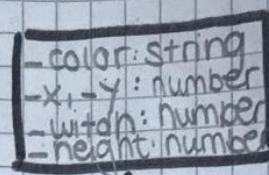 -color: string
-x, -y: number
-witdh: number
-height: number